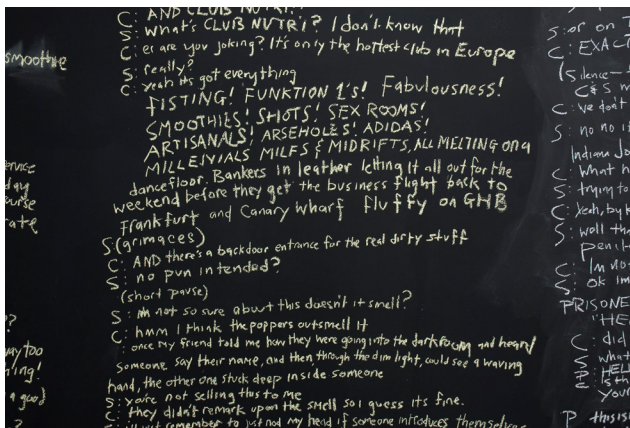 smoothie
ervice
day
urse
rate
??
way too
ning!
a good
?
C: AND CLUB NUTRI?
S: what's CLUB NUTRI? I don't know that
C: er are you joking? It's only the hottest club in Europe
S: really?
C: yeah its got everything
FISTING! FUNKTION 1's! Fabulousness!
SMOOTHIES! SHOTS! SEX ROOMS!
ARTISANALS! ARSEHOLES! ADIDAS!
MILLENYIALS MILFS & MIDRIFTS, ALL MELTING on a
dancefloor. Bankers in leather letting it all out for the
weekend before they get the business flight back to
Frankfurt and Canary wharf fluffy on GHB
S: (grimaces)
C: AND there's a backdoor entrance for the real dirty stuff
S: no pun intended?
(short pause)
S: im not so sure about this doesn't it smell?
C: hmm I think the poppers outsmell it
: once my friend told me how they were going into the darkroom and heard
someone say their name, and then through the dim light, could see a waving
hand, the other one stuck deep inside someone
S: you're not selling this to me
C: they didn't remark upon the smell so i guess its fine.
remember to just nod my head if someone introduces themselves
S: or on
C: EXACT
(silence-
C & S
C: we dont
S: no no i
Indiana Jo
C: What h
S: trying to
C: yeah, by
S: well tha
penit
C: Im no
S: ok im
PRISONE
"HE
C: did
S: what
P: HELL
E: is th
your
P this is